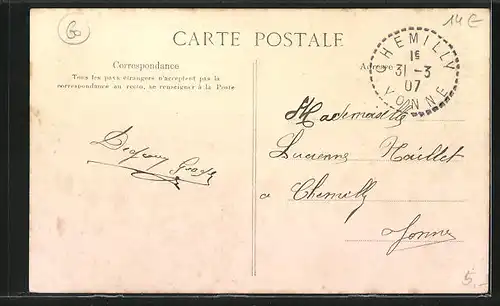 60
14 €
CARTE POSTALE
Correspondance
Tous les pays étrangers n'acceptent pas la
correspondance au recto, se renseigner à la Poste
Adresse
CHEMILLY
1E
31 -3
07
YONNE
Mademoiselle
Lucienne Naillet
a Chemilly
Yonne
5.-